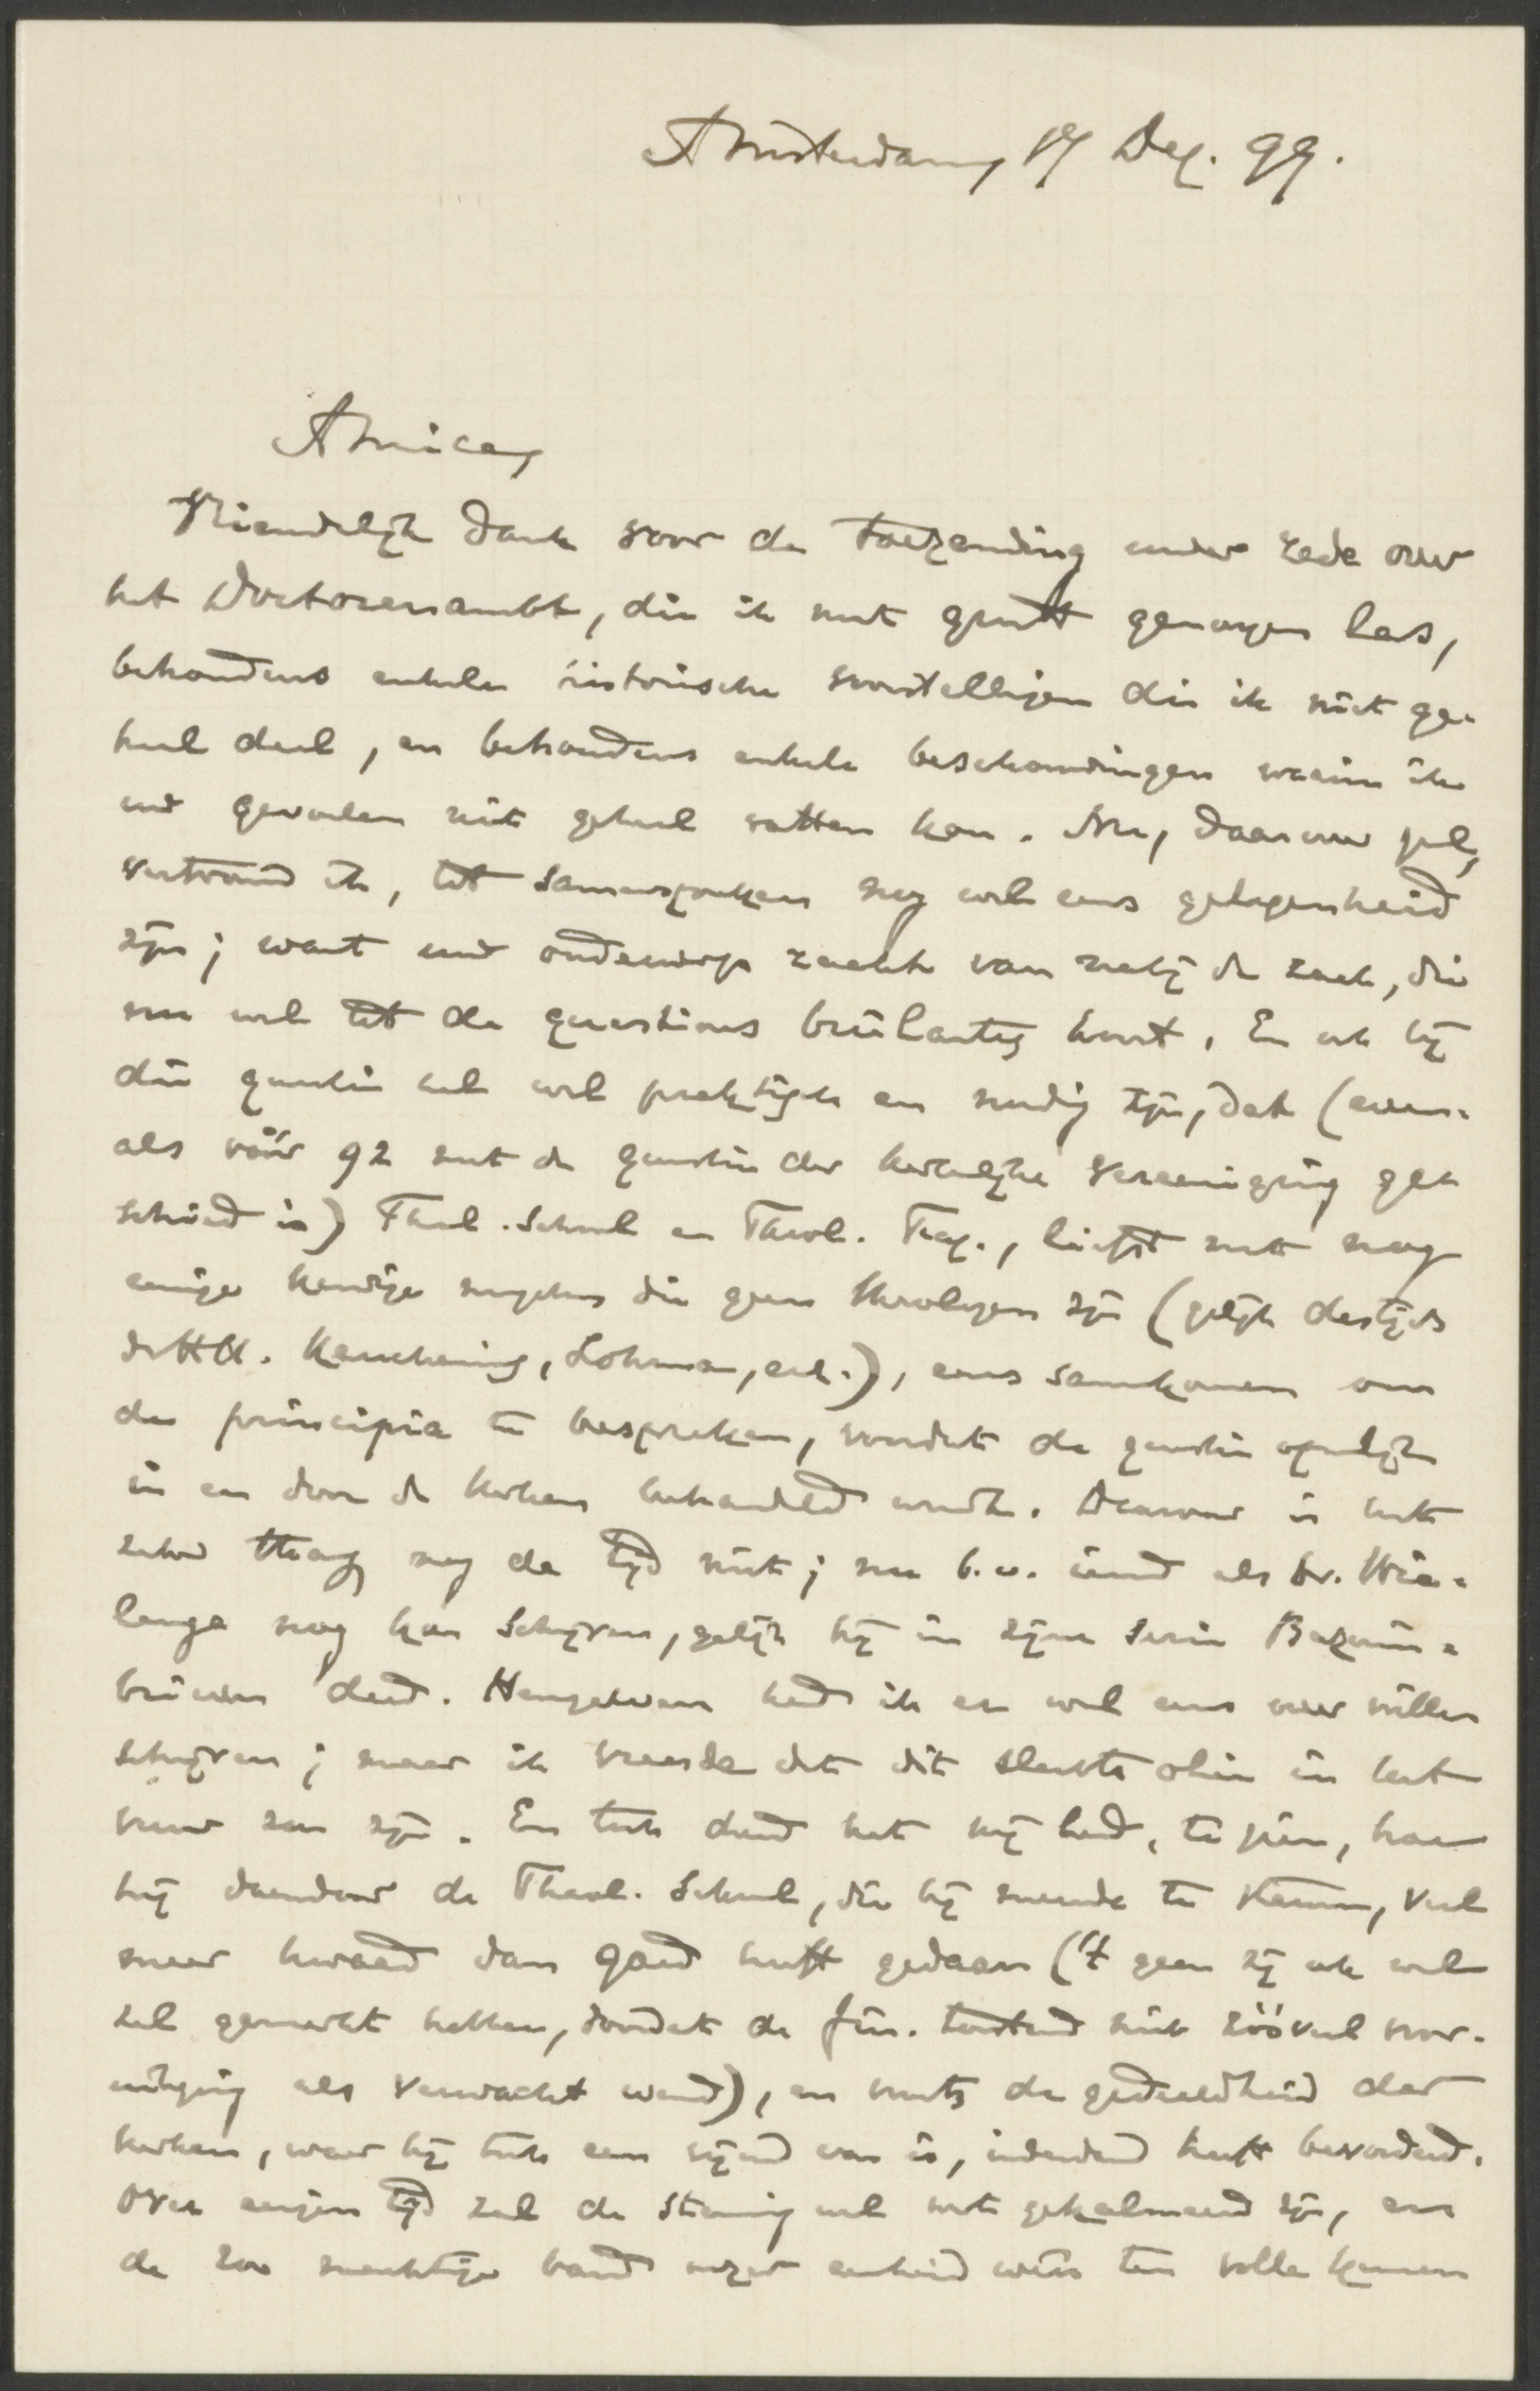 Amsterdam, 19 Dec. 99.
Amice,
Vriendelijk dank voor de toezending uwer rede over
het Doctorenambt, die ik met groot genoegen las,
behoudens enkele historische voorstellingen die ik niet ge-
heel deel, en behoudens enkele beschouwingen waarin ik
uw gevoelen niet geheel vatten kon. Nu, daarover zal,
vertrouw ik, tot samenspreken nog wel eens gelegenheid
zijn; want uw onderwerp raakte van nabij de zaak, die
nu wel tot de questions brûlantes hoort. En ook bij
die quaestie zal wel praktisch en noodig zijn, dat (even-
als vóór 92 met de quaestie der kerkelijke vereeniging ge-
schied is) Theol. School en Theol. Fac., liefst met nog
eenige kundige mannen die geen theologen zijn (gelijk destijds
de HH. Keuchenius, Lohman, enz.), eens samenkomen om
de principia te bespreken, voordat de quaestie openlijk
in en door de kerken behandeld wordt. Daarvoor is het
echter thans nog de tijd niet; nu b.v. iemand als br. Wie-
lenga nog kan schrijven, gelijk hij in zijne serie Bazuin-
brieven deed. Hengelveen had ik er wel eens over willen
schrijven; maar ik vreesde dat dit slechts olie in het
vuur zou zijn. En toch deed het mij leed, te zien, hoe
hij daardoor de Theol. School, die hij meende te steunen, veel
meer kwaad dan goed heeft gedaan ('t geen zij ook wel
zal gemerkt hebben, doordat de fin. toestand niet zóóveel voor-
uitging als verwacht werd), en voorts de gedeeldheid der
kerken, waar hij toch een vijand van is, inderdaad heeft bevorderd.
Over eenigen tijd zal de stemming wel wat gekalmeerd zijn, en
de zoo machtige band onzer eenheid weer ten volle kunnen